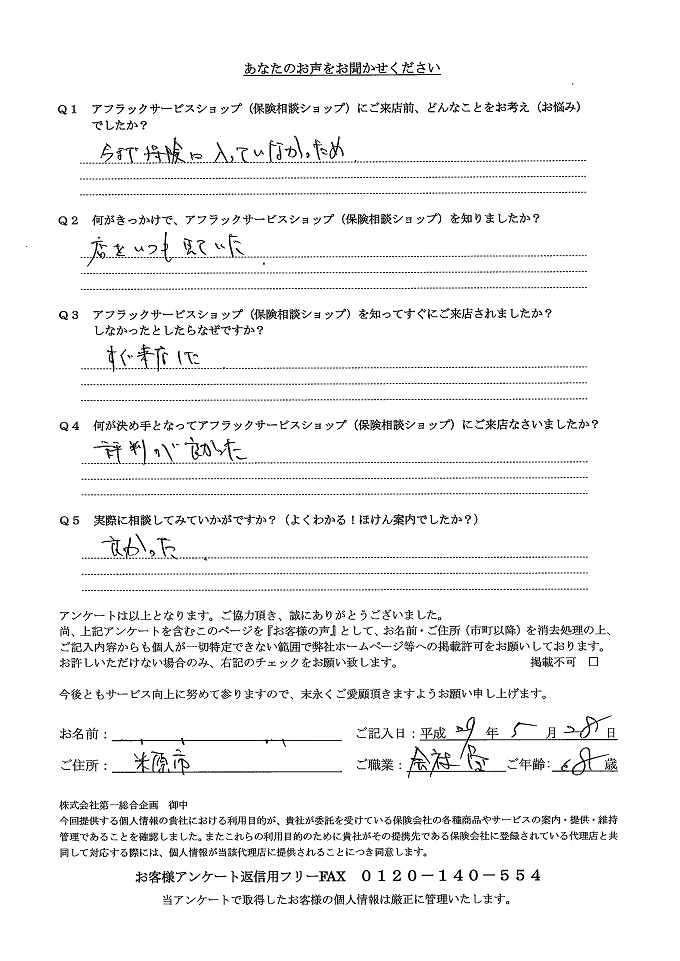 あなたのお声をお聞かせください
Q1 アフラックサービスショップ（保険相談ショップ）にご来店前、どんなことをお考え（お悩み）
でしたか？
今まで保険に入っていなかったため
Q2 何がきっかけで、アフラックサービスショップ（保険相談ショップ）を知りましたか？
店をいつも見ていた
Q3 アフラックサービスショップ（保険相談ショップ）を知ってすぐにご来店されましたか？
しなかったとしたらなぜですか？
すぐ来店した
Q4 何が決め手となってアフラックサービスショップ（保険相談ショップ）にご来店なさいましたか？
評判が良かった
Q5 実際に相談してみていかがですか？（よくわかる！ほけん案内でしたか？）
良かった
アンケートは以上となります。ご協力頂き、誠にありがとうございました。
尚、上記アンケートを含むこのページを『お客様の声』として、お名前・ご住所（市町以降）を消去処理の上、
ご記入内容からも個人が一切特定できない範囲で弊社ホームページ等への掲載許可をお願いしております。
お許しいただけない場合のみ、右記のチェックをお願い致します。 掲載不可 □
今後ともサービス向上に努めて参りますので、末永くご愛顧頂きますようお願い申し上げます。
お名前： ご記入日：平成 29 年 5 月 28 日
ご住所： 米原市 ご職業： 会社役 ご年齢： 68 歳
株式会社第一総合企画 御中
今回提供する個人情報の貴社における利用目的が、貴社が委託を受けている保険会社の各種商品やサービスの案内・提供・維持
管理であることを確認しました。またこれらの利用目的のために貴社がその提携先である保険会社に登録されている代理店と共
同して対応する際には、個人情報が当該代理店に提供されることにつき同意します。
お客様アンケート返信用フリーFAX 0120－140－554
当アンケートで取得したお客様の個人情報は厳正に管理いたします。